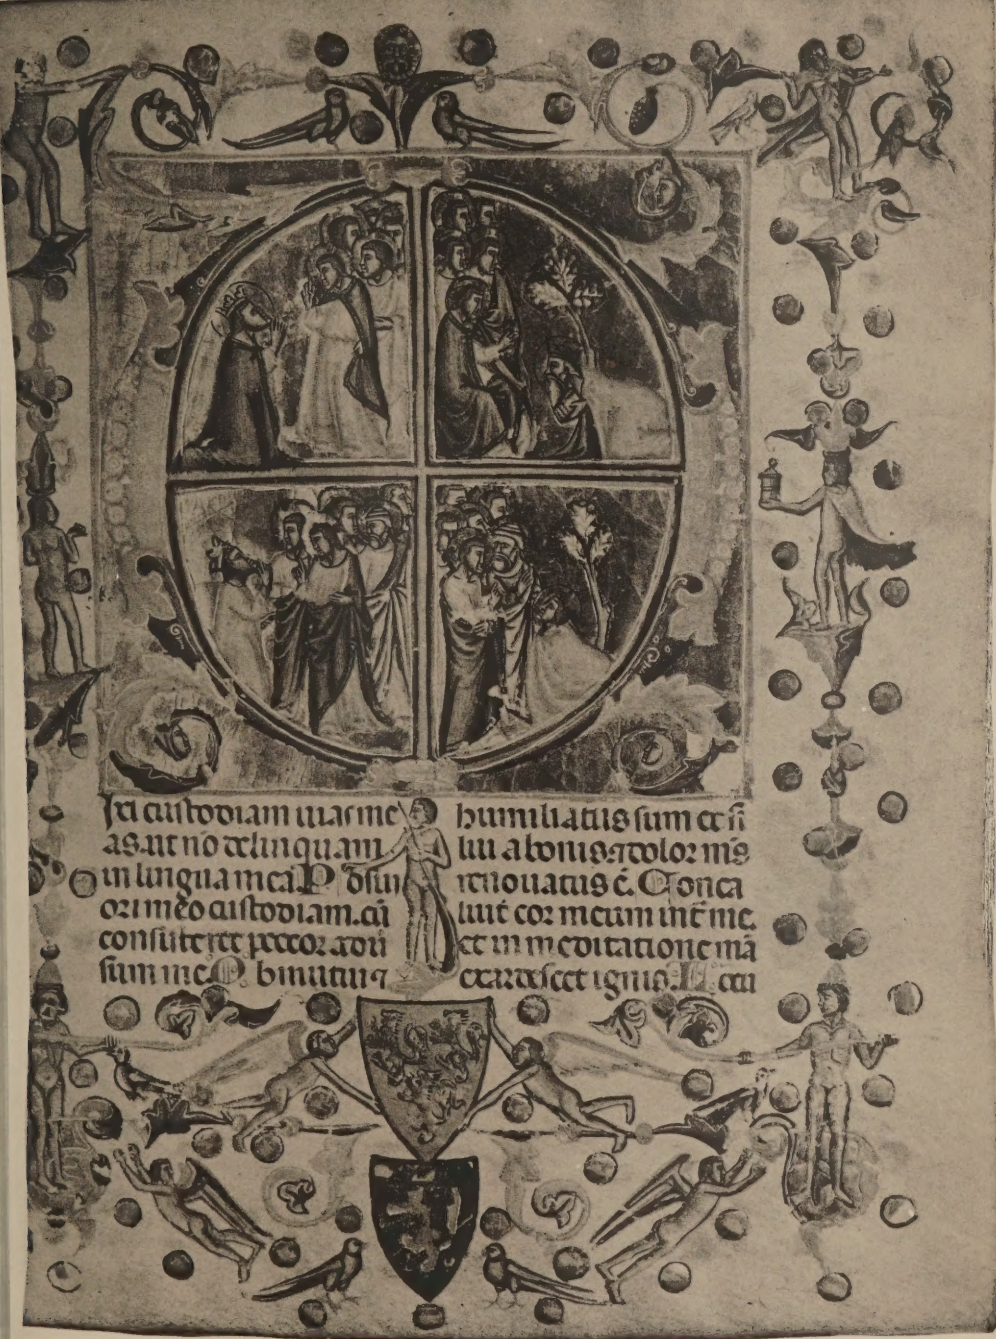 ixi custodiam uias me
as. ut nō delinquam
in lingua mea. Posui
ori meo custodiam. cū
consisteret peccor adū
sum me. Obmutui ⁊
humiliatus sum et si
lui a bonis. ⁊ dolor m̄s
renouatus ē. Conca
luit cor meum int̄ me.
et in meditatione mā
exardescet ignis. Locu